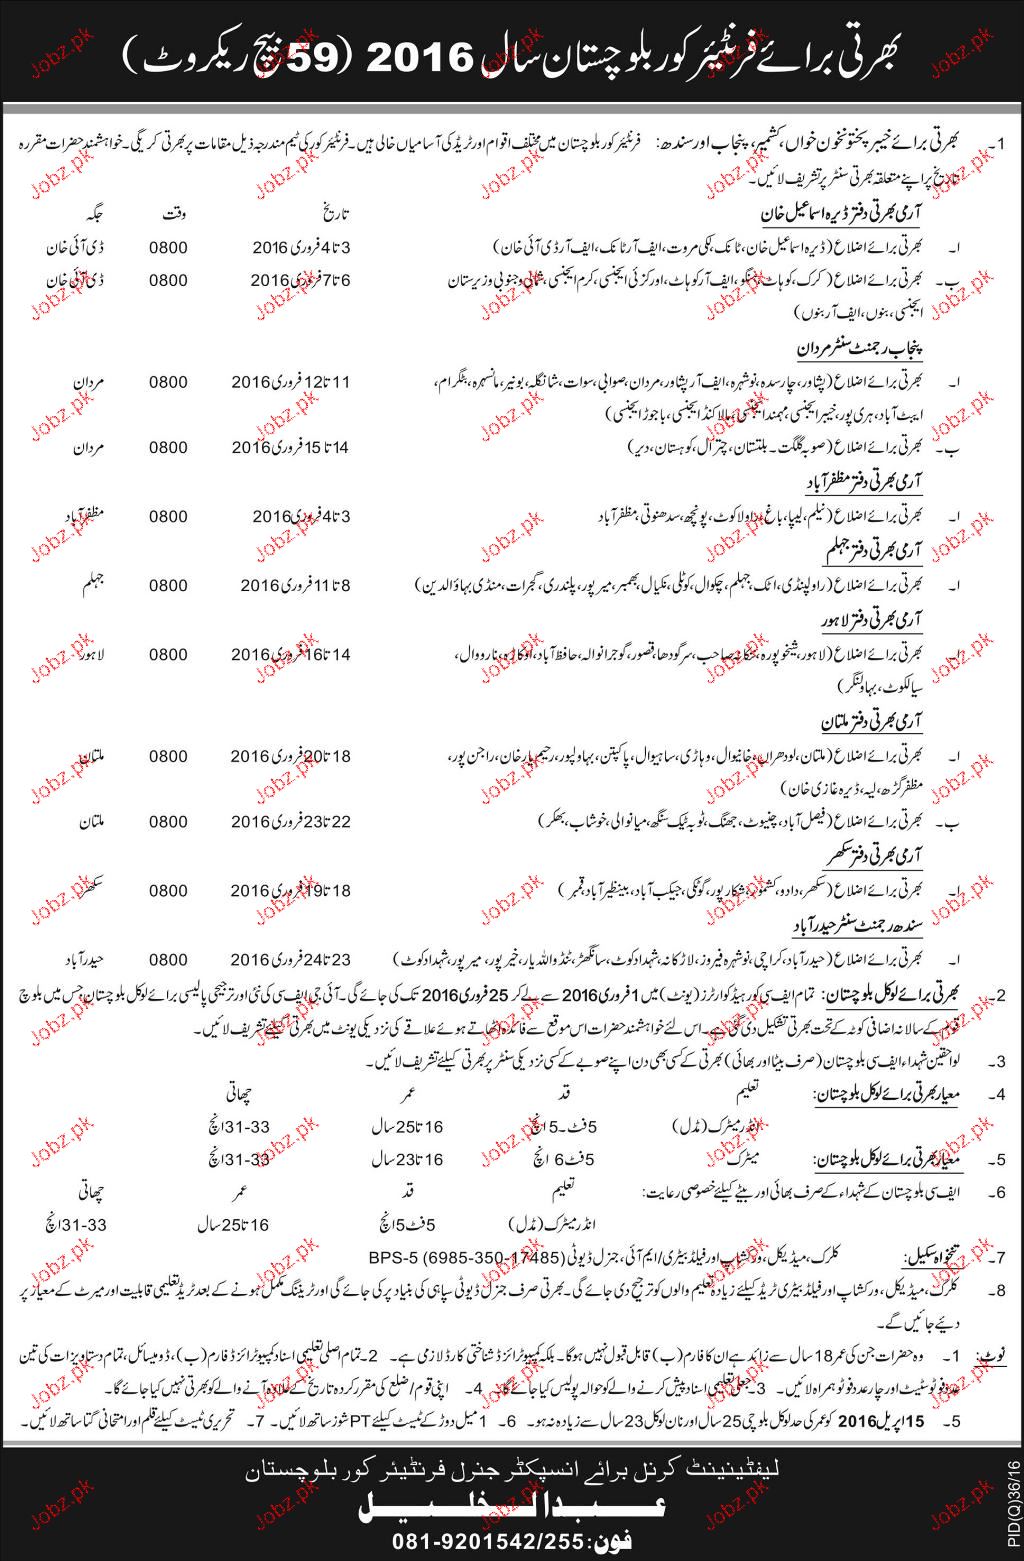 بھرتی برائے فرنٹیئر کور بلوچستان سال 2016 (59 بیچ ریکروٹ)
1۔ بھرتی برائے خیبر پختونخون خواں، کشمیر، پنجاب اور سندھ: فرنٹیئر کور بلوچستان میں مختلف اقوام اور ٹریڈ کی آسامیاں خالی ہیں۔ فرنٹیئر کور کی ٹیم مندرجہ ذیل مقامات پر بھرتی کریگی۔ خواہشمند حضرات مقررہ
تاریخ پر اپنے متعلقہ بھرتی سنٹر پر تشریف لائیں۔
آرمی بھرتی دفتر ڈیرہ اسماعیل خان تاریخ وقت جگہ
ا۔ بھرتی برائے اضلاع (ڈیرہ اسماعیل خان، ٹانک، لکی مروت، ایف آر ٹانک، ایف آر ڈی آئی خان) 3 تا 4 فروری 2016 0800 ڈی آئی خان
ب۔ بھرتی برائے اضلاع (کرک، کوہاٹ، ہنگو، ایف آر کوہاٹ، اورکزئی ایجنسی، کرم ایجنسی، شمالی و جنوبی وزیرستان 6 تا 7 فروری 2016 0800 ڈی آئی خان
ایجنسی، بنوں، ایف آر بنوں)
پنجاب رجمنٹ سنٹر مردان
ا۔ بھرتی برائے اضلاع (پشاور، چارسدہ، نوشہرہ، ایف آر پشاور، مردان، صوابی، سوات، شانگلہ، بونیر، مانسہرہ، بٹگرام، 11 تا 12 فروری 2016 0800 مردان
ایبٹ آباد، ہری پور، خیبر ایجنسی، مہمند ایجنسی، مالاکنڈ ایجنسی، باجوڑ ایجنسی)
ب۔ بھرتی برائے اضلاع (صوبہ گلگت۔ بلتستان، چترال، کوہستان، دیر) 14 تا 15 فروری 2016 0800 مردان
آرمی بھرتی دفتر مظفر آباد
ا۔ بھرتی برائے اضلاع (نیلم، لیپا، باغ، راولاکوٹ، پونچھ، سدھنوتی، مظفر آباد 3 تا 4 فروری 2016 0800 مظفر آباد
آرمی بھرتی دفتر جہلم
ا۔ بھرتی برائے اضلاع (راولپنڈی، اٹک، جہلم، چکوال، کوٹلی، نکیال، بھمبر، میر پور، پلندری، گجرات، منڈی بہاؤالدین) 8 تا 11 فروری 2016 0800 جہلم
آرمی بھرتی دفتر لاہور
ا۔ بھرتی برائے اضلاع (لاہور، شیخوپورہ، ننکانہ صاحب، سرگودھا، قصور، گوجرانوالہ، حافظ آباد، اوکاڑہ، نارووال، 14 تا 16 فروری 2016 0800 لاہور
سیالکوٹ، بہاولنگر)
آرمی بھرتی دفتر ملتان
ا۔ بھرتی برائے اضلاع (ملتان، لودھراں، خانیوال، وہاڑی، ساہیوال، پاکپتن، بہاولپور، رحیم یار خان، راجن پور، 18 تا 20 فروری 2016 0800 ملتان
مظفر گڑھ، لیہ، ڈیرہ غازی خان)
ب۔ بھرتی برائے اضلاع (فیصل آباد، چنیوٹ، جھنگ، ٹوبہ ٹیک سنگھ، میانوالی، خوشاب، بھکر) 22 تا 23 فروری 2016 0800 ملتان
آرمی بھرتی دفتر سکھر
ا۔ بھرتی برائے اضلاع (سکھر، دادو، کشمور، شکار پور، گوٹکی، جیکب آباد، بینظیر آباد، قمبر) 18 تا 19 فروری 2016 0800 سکھر
سندھ رجمنٹ سنٹر حیدر آباد
ا۔ بھرتی برائے اضلاع (حیدر آباد، کراچی، نوشہرہ فیروز، لاڑکانہ، شہداد کوٹ، سانگھڑ، ٹنڈو اللہ یار، خیر پور، میر پور، شہداد کوٹ) 23 تا 24 فروری 2016 0800 حیدر آباد
2۔ بھرتی برائے لوکل بلوچستان: تمام ایف سی کور ہیڈ کوارٹرز (یونٹ) میں 1 فروری 2016 سے لے کر 25 فروری 2016 تک کی جائے گی۔ آئی جی ایف سی کی نئی اور ترجیحی پالیسی برائے لوکل بلوچستان جس میں بلوچ
قوم کے سالانہ اضافی کوٹہ کے تحت بھرتی تشکیل دی گئی ہے۔ اس لئے خواہشمند حضرات اس موقع سے فائدہ اٹھاتے ہوئے علاقے کی نزدیکی یونٹ میں بھرتی کیلئے تشریف لائیں۔
3۔ لواحقین شہداء ایف سی بلوچستان (صرف بیٹا اور بھائی) بھرتی کے کسی بھی دن اپنے صوبے کے کسی نزدیکی سنٹر پر بھرتی کیلئے تشریف لائیں۔
4۔ معیار بھرتی برائے لوکل بلوچستان: تعلیم قد عمر چھاتی
انڈر میٹرک (مڈل) 5 فٹ۔ 5 انچ 16 تا 25 سال 31-33 انچ
5۔ معیار بھرتی برائے لوکل بلوچستان: میٹرک 5 فٹ 6 انچ 16 تا 23 سال 31-33 انچ
6۔ ایف سی بلوچستان کے شہداء کے صرف بھائی اور بیٹے کیلئے خصوصی رعایت: تعلیم قد عمر چھاتی
انڈر میٹرک (مڈل) 5 فٹ 5 انچ 16 تا 25 سال 31-33 انچ
7۔ تنخواہ سکیل: کلرک، میڈیکل، ورکشاپ اور فیلڈ بیٹری/ایم آئی، جنرل ڈیوٹی BPS-5 (6985-350-17485)
8۔ کلرک، میڈیکل، ورکشاپ اور فیلڈ بیٹری ٹریڈ کیلئے زیادہ تعلیم والوں کو ترجیح دی جائے گی۔ بھرتی صرف جنرل ڈیوٹی سپاہی کی بنیاد پر کی جائے گی اور ٹریننگ مکمل ہونے کے بعد ٹریڈ تعلیمی قابلیت اور میرٹ کے معیار پر
دیے جائیں گے۔
نوٹ: 1۔ وہ حضرات جن کی عمر 18 سال سے زائد ہے ان کا فارم (ب) قابل قبول نہیں ہوگا۔ بلکہ کمپیوٹرائزڈ شناختی کارڈ لازمی ہے۔ 2۔ تمام اصلی تعلیمی اسناد کمپیوٹرائزڈ فارم (ب)، ڈومیسائل، تمام دستاویزات کی تین
عدد فوٹو سٹیٹ اور چار عدد فوٹو ہمراہ لائیں۔ 3۔ جعلی تعلیمی اسناد پیش کرنے والے کو حوالہ پولیس کیا جائے گا۔ 4۔ اپنی قوم / ضلع کی مقرر کردہ تاریخ کے علاوہ آنے والے کو بھرتی نہیں کیا جائے گا۔
5۔ 15 اپریل 2016 کو عمر کی حد لوکل بلوچی 25 سال اور نان لوکل 23 سال سے زیادہ نہ ہو۔ 6۔ 1 میل دوڑ کے ٹیسٹ کیلئے PT شوز ساتھ لائیں۔ 7۔ تحریری ٹیسٹ کیلئے قلم اور امتحانی گتا ساتھ لائیں۔
لیفٹیننٹ کرنل برائے انسپکٹر جنرل فرنٹیئر کور بلوچستان
عبدالخلیل
فون: 081-9201542/255
PID(Q)36/16
Jobz.pk